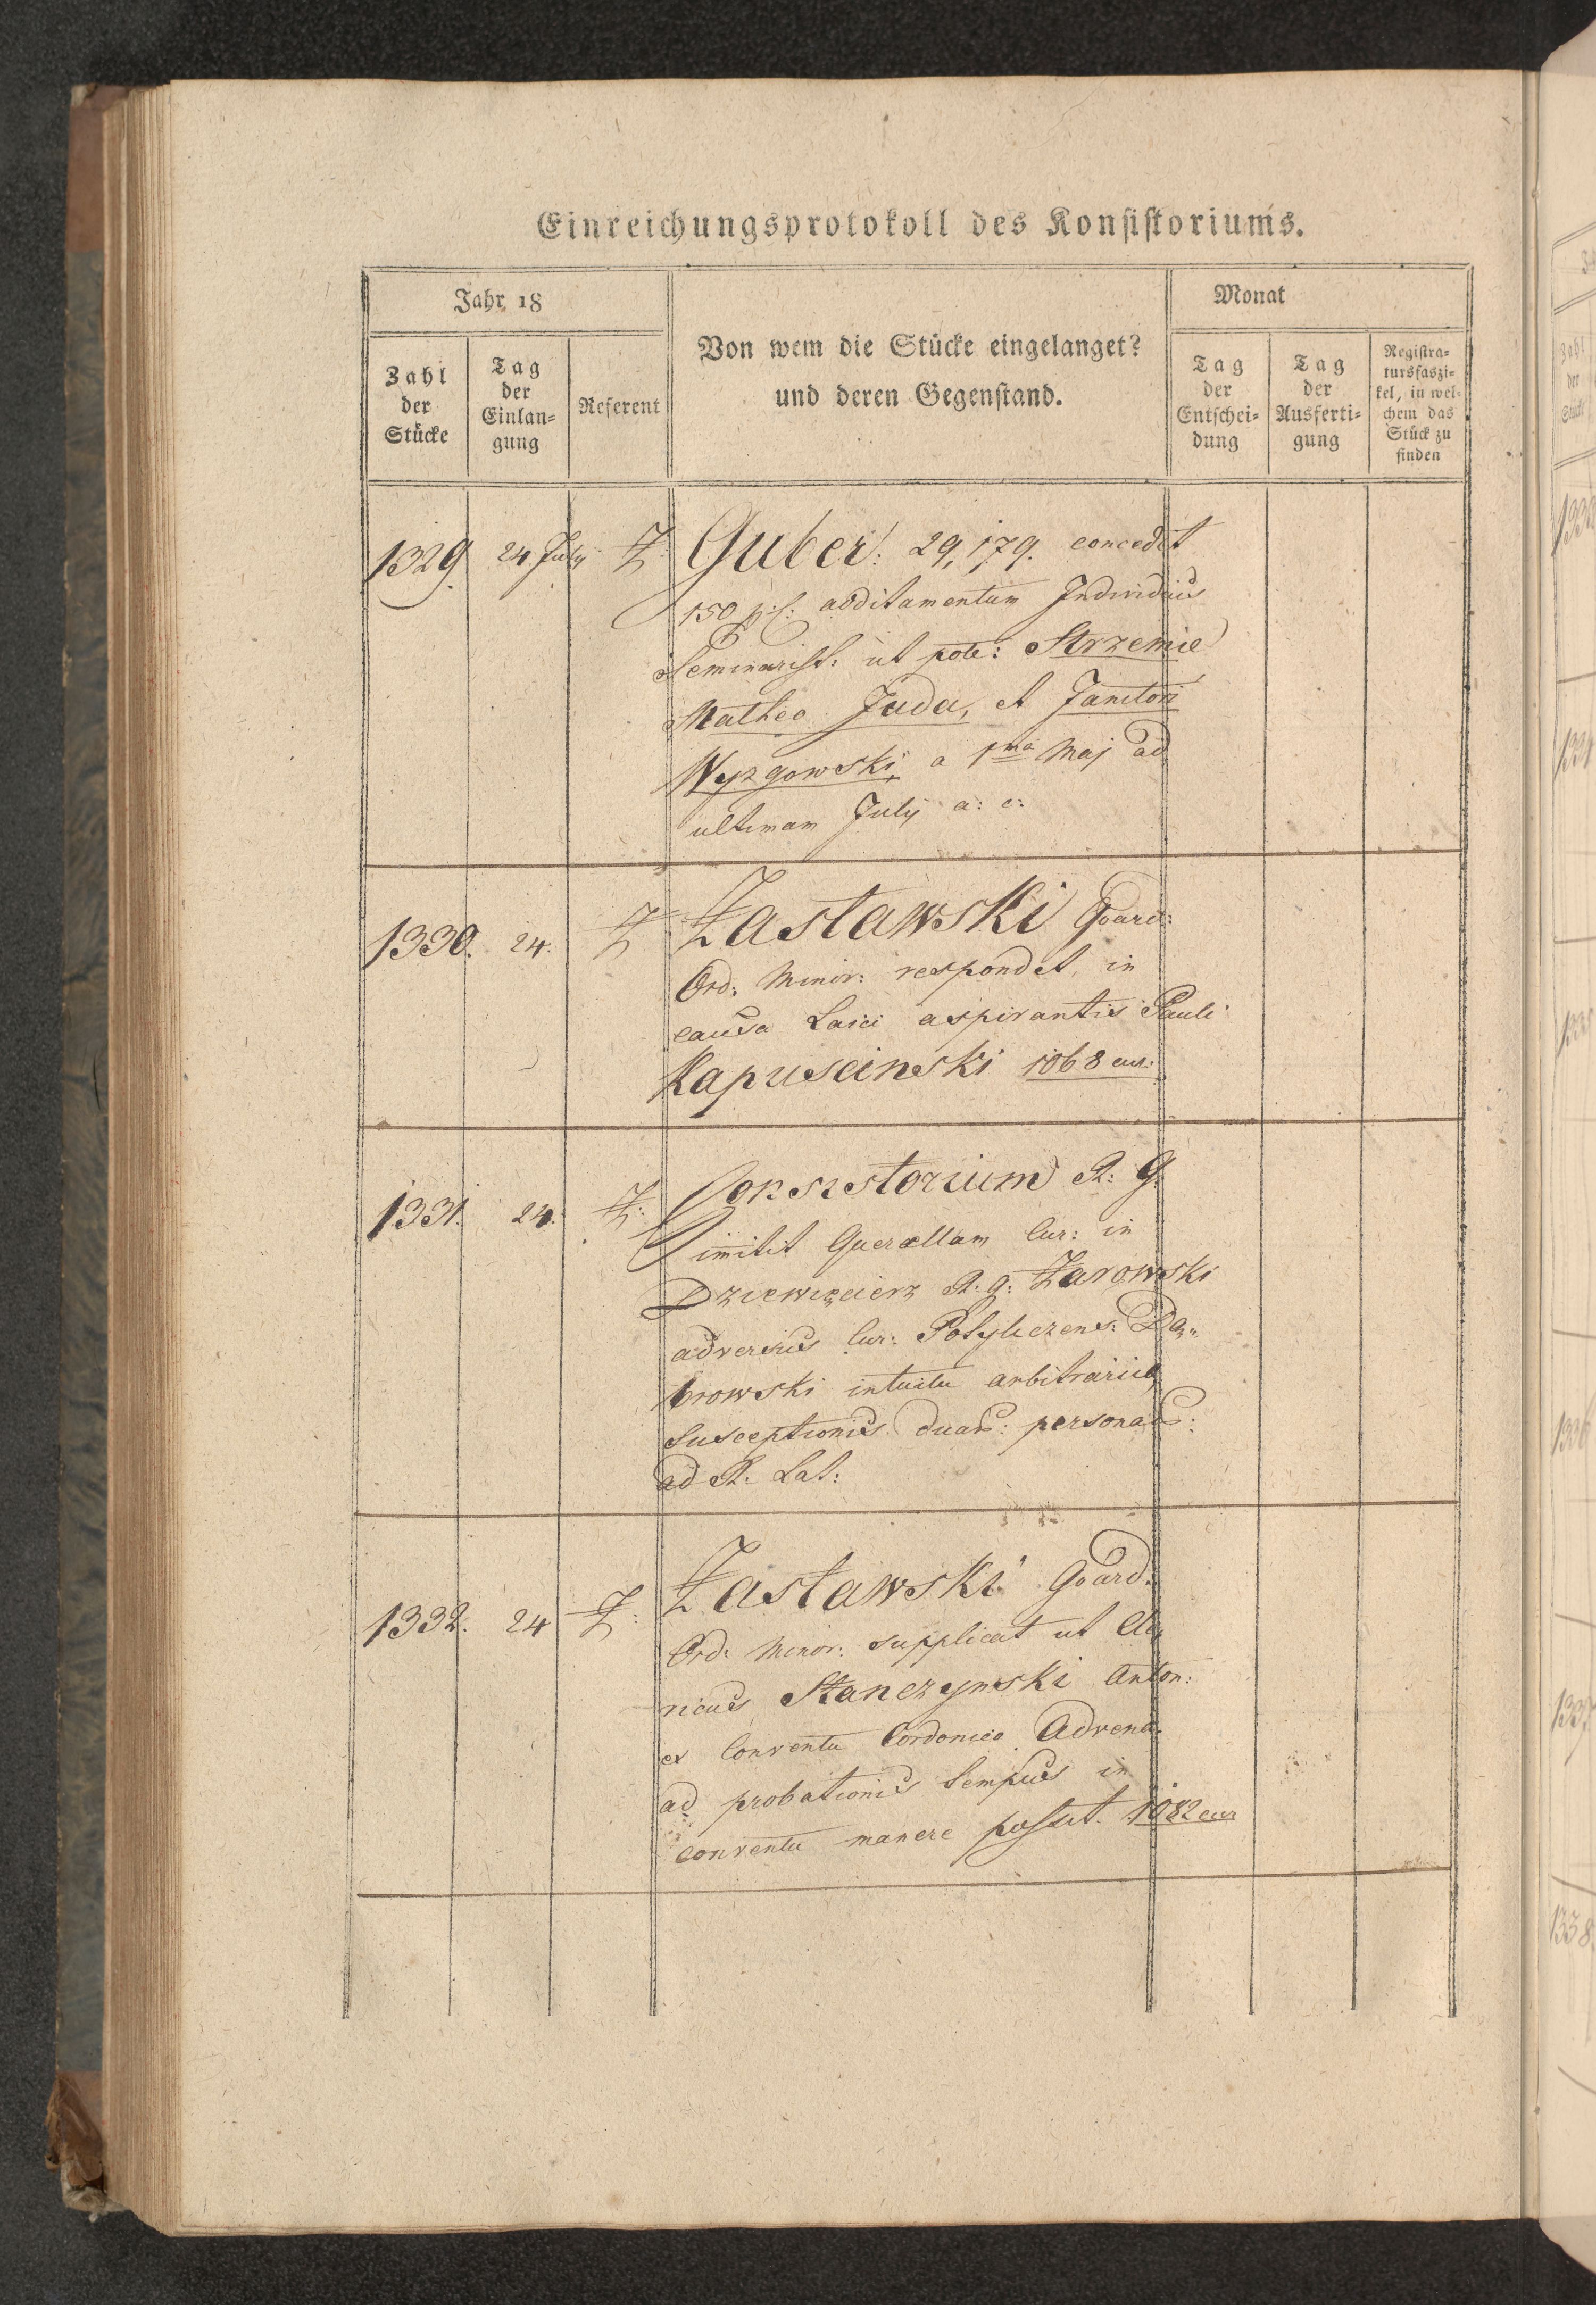 Einreichungsprotokoll des Konsistoriums.
Jahr 18
Monat
Zahl der Stücke
Tag der Einlan= gung
Referent
Von wem die Stücke eingelanget? und deren Gegenstand.
Tag der Entschei= dung
Tag der Ausferti= gung
Registra= tursfaszi= kel, in wel= chem das Stück zu finden
1329. 24 July Z: Guber: 29,179. concedit
150 additamentum Individuis
Seminarist: ut pote: Strzemie
Matheo Juda, et Janitori
Wyzgowski, a 1ma Maj ad
ultimam July a: c:
1330. 24. Z: Zasławski Guard:
Ord: Minor: respondet in
causa Laici aspirantis Pauli
Kapuscinski 1068 cur:
1331. 24. Z: Consistorium R: G:
imitit Querellam Cur: in
Dziewięcierz R: g: Zarowski
adversus Cur: Potyliczens: Da„
browski intuitu arbitrariae
Susceptionis duar: personar:
ad R: Lat:
1332. 24 Z: Zasławski Guard:
Ord: Minor: supplicat ut Cle„
ricus Stanczynski Anton:
ex Conventu Advena
ad probationis tempus in
conventu manere possit. 1082 cur